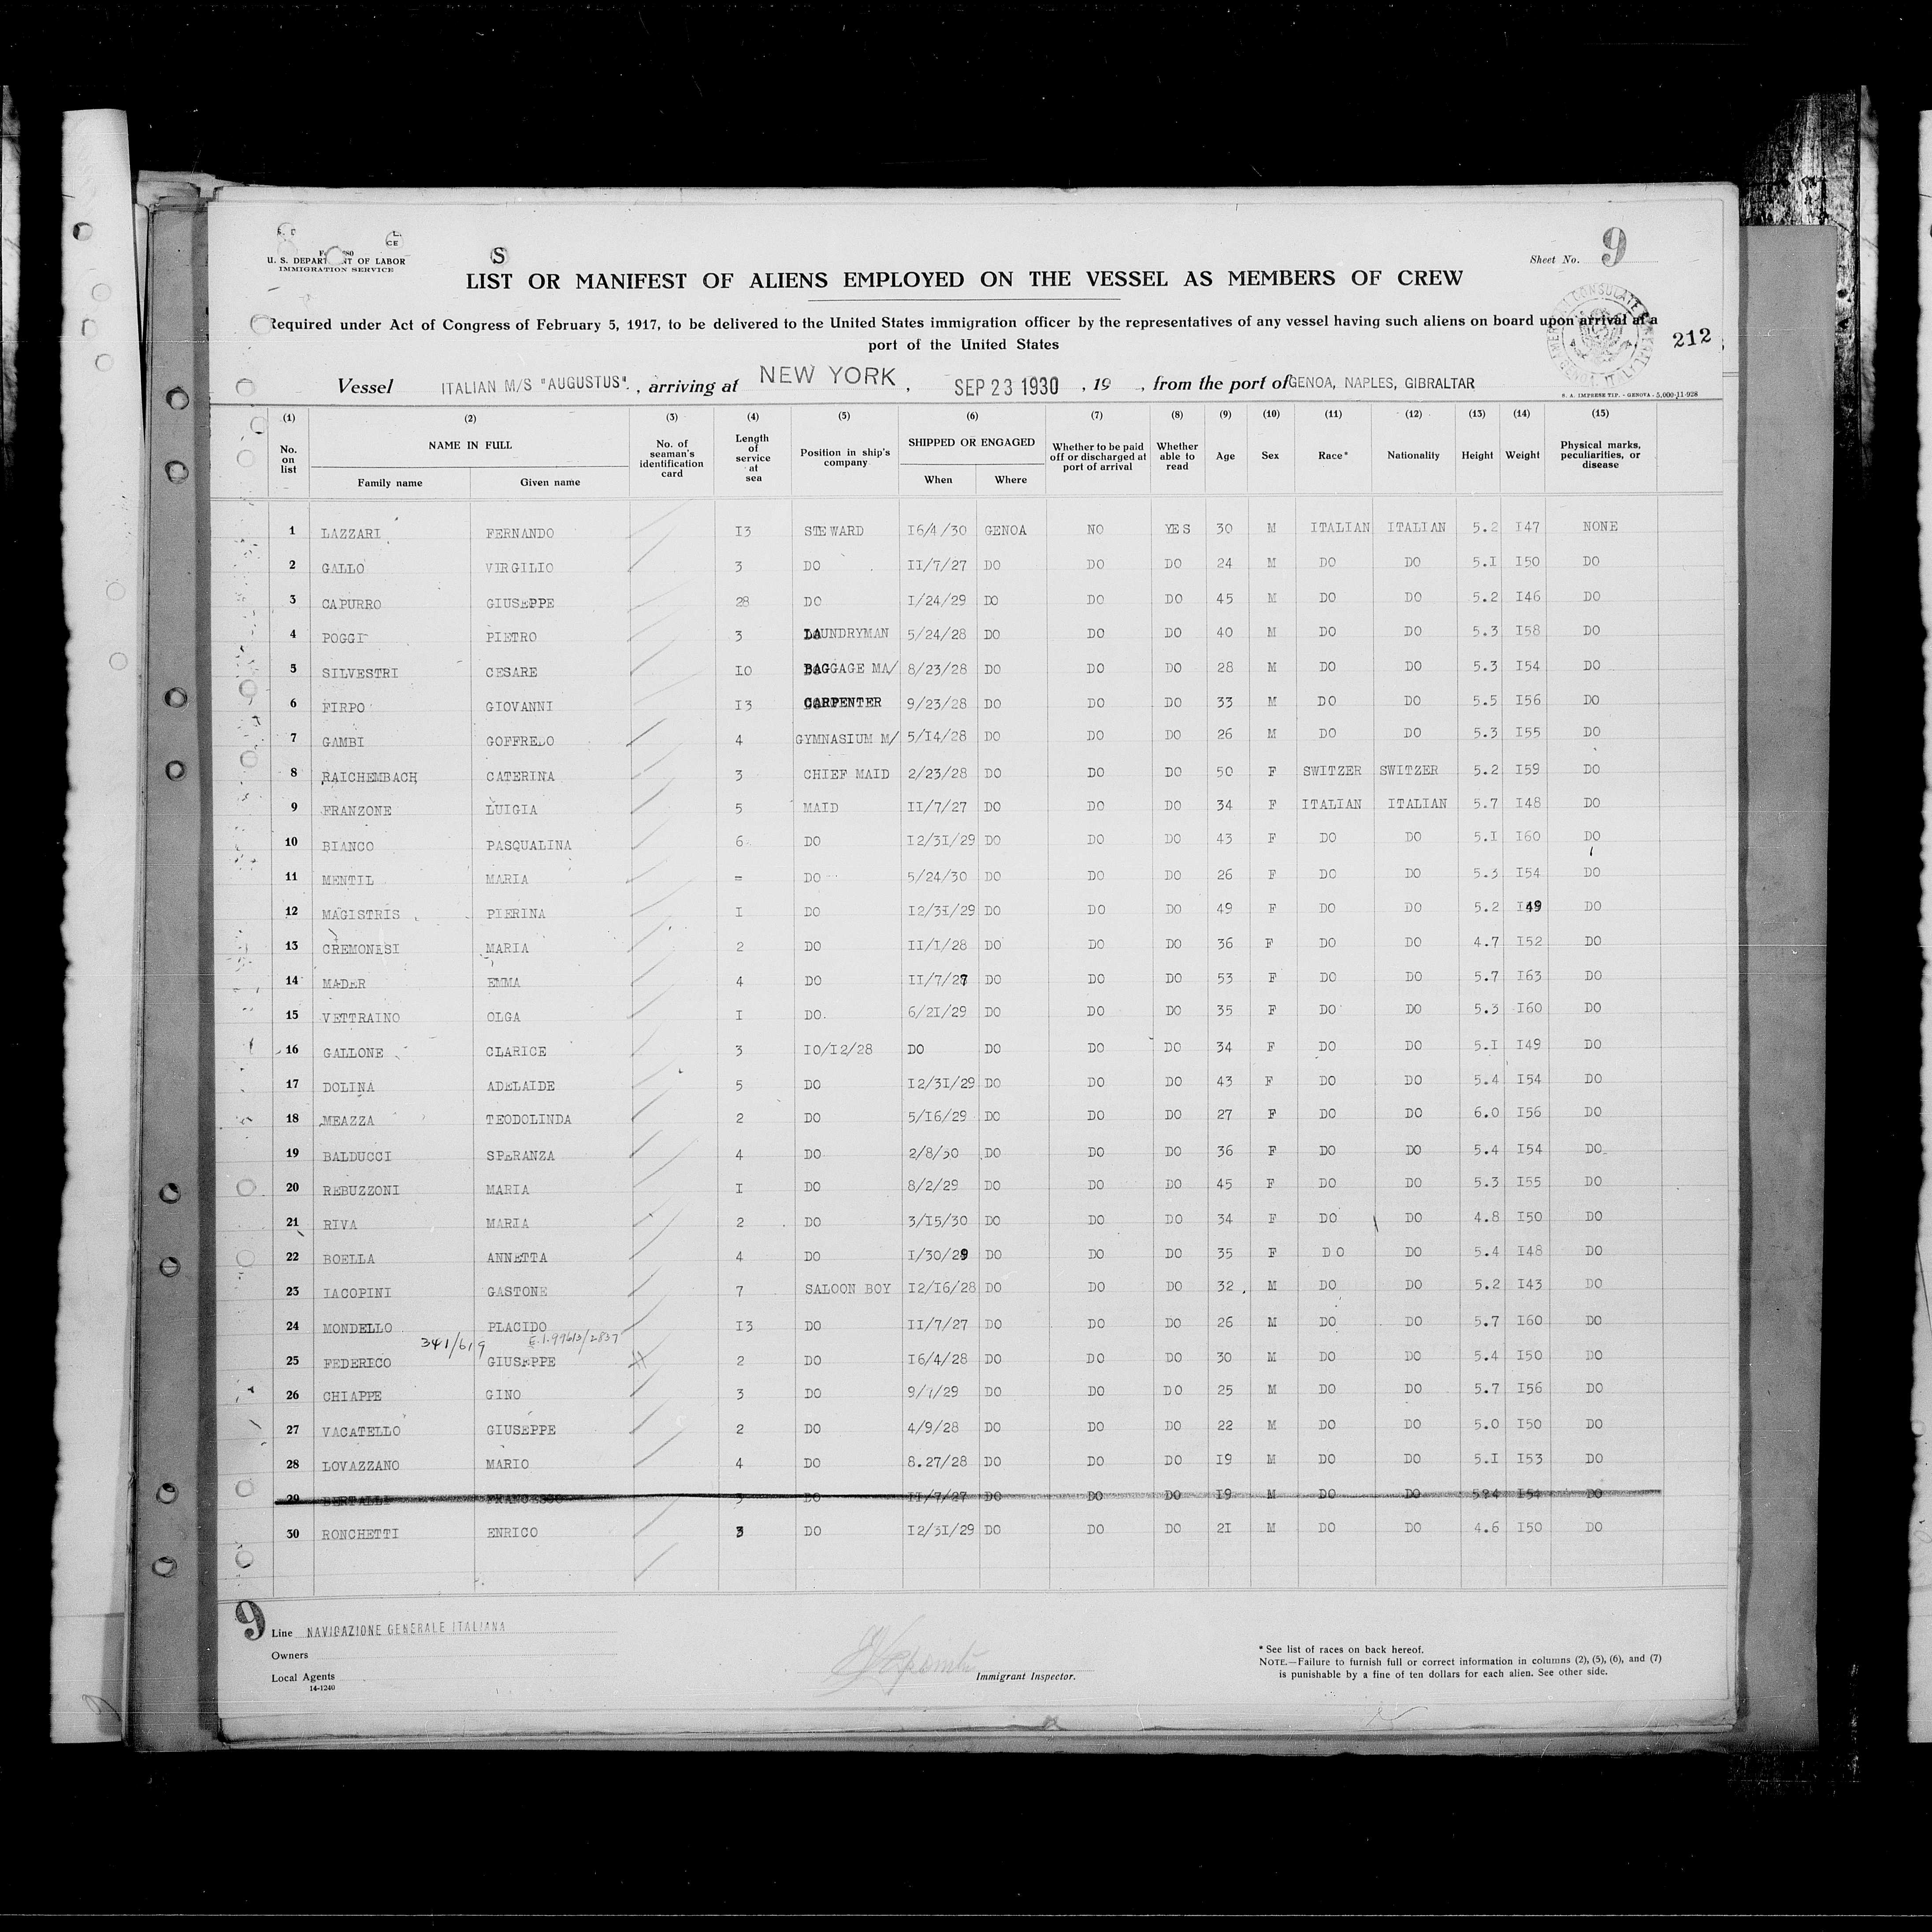 Sheet No. 9
U. S. DEPARTMENT OF LABOR
IMMIGRATION SERVICE
S
LIST OR MANIFEST OF ALIENS EMPLOYED ON THE VESSEL AS MEMBERS OF CREW
Required under Act of Congress of February 5, 1917, to be delivered to the United States immigration officer by the representatives of any vessel having such aliens on board upon arrival at a
port of the United States
212
Vessel ITALIAN M/S "AUGUSTUS". , arriving at NEW YORK , SEP 23 1930 , 19 , from the port of GENOA, NAPLES, GIBRALTAR
S. A. IMPRESE TIP. - GENOVA - 5,000-11-928
(1) (2) (3) (4) (5) (6) (7) (8) (9) (10) (11) (12) (13) (14) (15)
No. on list NAME IN FULL Family name Given name No. of seaman's identification card Length of service at sea Position in ship's company SHIPPED OR ENGAGED When Where Whether to be paid off or discharged at port of arrival Whether able to read Age Sex Race* Nationality Height Weight Physical marks, peculiarities, or disease
1 LAZZARI FERNANDO 13 STEWARD 16/4/30 GENOA NO YES 30 M ITALIAN ITALIAN 5.2 147 NONE
2 GALLO VIRGILIO 3 DO 11/7/27 DO DO DO 24 M DO DO 5.1 150 DO
3 CAPURRO GIUSEPPE 28 DO 1/24/29 DO DO DO 45 M DO DO 5.2 146 DO
4 POGGI PIETRO 3 LAUNDRYMAN 5/24/28 DO DO DO 40 M DO DO 5.3 158 DO
5 SILVESTRI CESARE 10 BAGGAGE MA/ 8/23/28 DO DO DO 28 M DO DO 5.3 154 DO
6 FIRPO GIOVANNI 13 CARPENTER 9/23/28 DO DO DO 33 M DO DO 5.5 156 DO
7 GAMBI GOFFREDO 4 GYMNASIUM M/ 5/14/28 DO DO DO 26 M DO DO 5.3 155 DO
8 RAICHEMBACH CATERINA 3 CHIEF MAID 2/23/28 DO DO DO 50 F SWITZER SWITZER 5.2 159 DO
9 FRANZONE LUIGIA 5 MAID 11/7/27 DO DO DO 34 F ITALIAN ITALIAN 5.7 148 DO
10 BIANCO PASQUALINA 6 DO 12/31/29 DO DO DO 43 F DO DO 5.1 160 DO
11 MENTIL MARIA = DO 5/24/30 DO DO DO 26 F DO DO 5.3 154 DO
12 MAGISTRIS PIERINA 1 DO 12/31/29 DO DO DO 49 F DO DO 5.2 149 DO
13 CREMONESI MARIA 2 DO 11/1/28 DO DO DO 36 F DO DO 4.7 152 DO
14 MADER EMMA 4 DO 11/7/27 DO DO DO 53 F DO DO 5.7 163 DO
15 VETTRAINO OLGA 1 DO 6/21/29 DO DO DO 35 F DO DO 5.3 160 DO
16 GALLONE CLARICE 3 10/12/28 DO DO DO DO 34 F DO DO 5.1 149 DO
17 DOLINA ADELAIDE 5 DO 12/31/29 DO DO DO 43 F DO DO 5.4 154 DO
18 MEAZZA TEODOLINDA 2 DO 5/16/29 DO DO DO 27 F DO DO 6.0 156 DO
19 BALDUCCI SPERANZA 4 DO 2/8/30 DO DO DO 36 F DO DO 5.4 154 DO
20 REBUZZONI MARIA 1 DO 8/2/29 DO DO DO 45 F DO DO 5.3 155 DO
21 RIVA MARIA 2 DO 3/15/30 DO DO DO 34 F DO DO 4.8 150 DO
22 BOELLA ANNETTA 4 DO 1/30/29 DO DO DO 35 F DO DO 5.4 148 DO
23 IACOPINI GASTONE 7 SALOON BOY 12/16/28 DO DO DO 32 M DO DO 5.2 143 DO
24 MONDELLO PLACIDO 13 DO 11/7/27 DO DO DO 26 M DO DO 5.7 160 DO
341/619 E.1.99613/2837
25 FEDERICO GIUSEPPE 2 DO 16/4/28 DO DO DO 30 M DO DO 5.4 150 DO
26 CHIAPPE GINO 3 DO 9/1/29 DO DO DO 25 M DO DO 5.7 156 DO
27 VACATELLO GIUSEPPE 2 DO 4/9/28 DO DO DO 22 M DO DO 5.0 150 DO
28 LOVAZZANO MARIO 4 DO 8.27/28 DO DO DO 19 M DO DO 5.1 153 DO
29 BERTALLI FRANCESCO 3 DO 11/7/27 DO DO DO 19 M DO DO 5.4 154 DO
30 RONCHETTI ENRICO 3 DO 12/31/29 DO DO DO 21 M DO DO 4.6 150 DO
9
Line NAVIGAZIONE GENERALE ITALIANA
Owners
Local Agents
14-1240
Immigrant Inspector.
* See list of races on back hereof.
NOTE.—Failure to furnish full or correct information in columns (2), (5), (6), and (7)
is punishable by a fine of ten dollars for each alien. See other side.